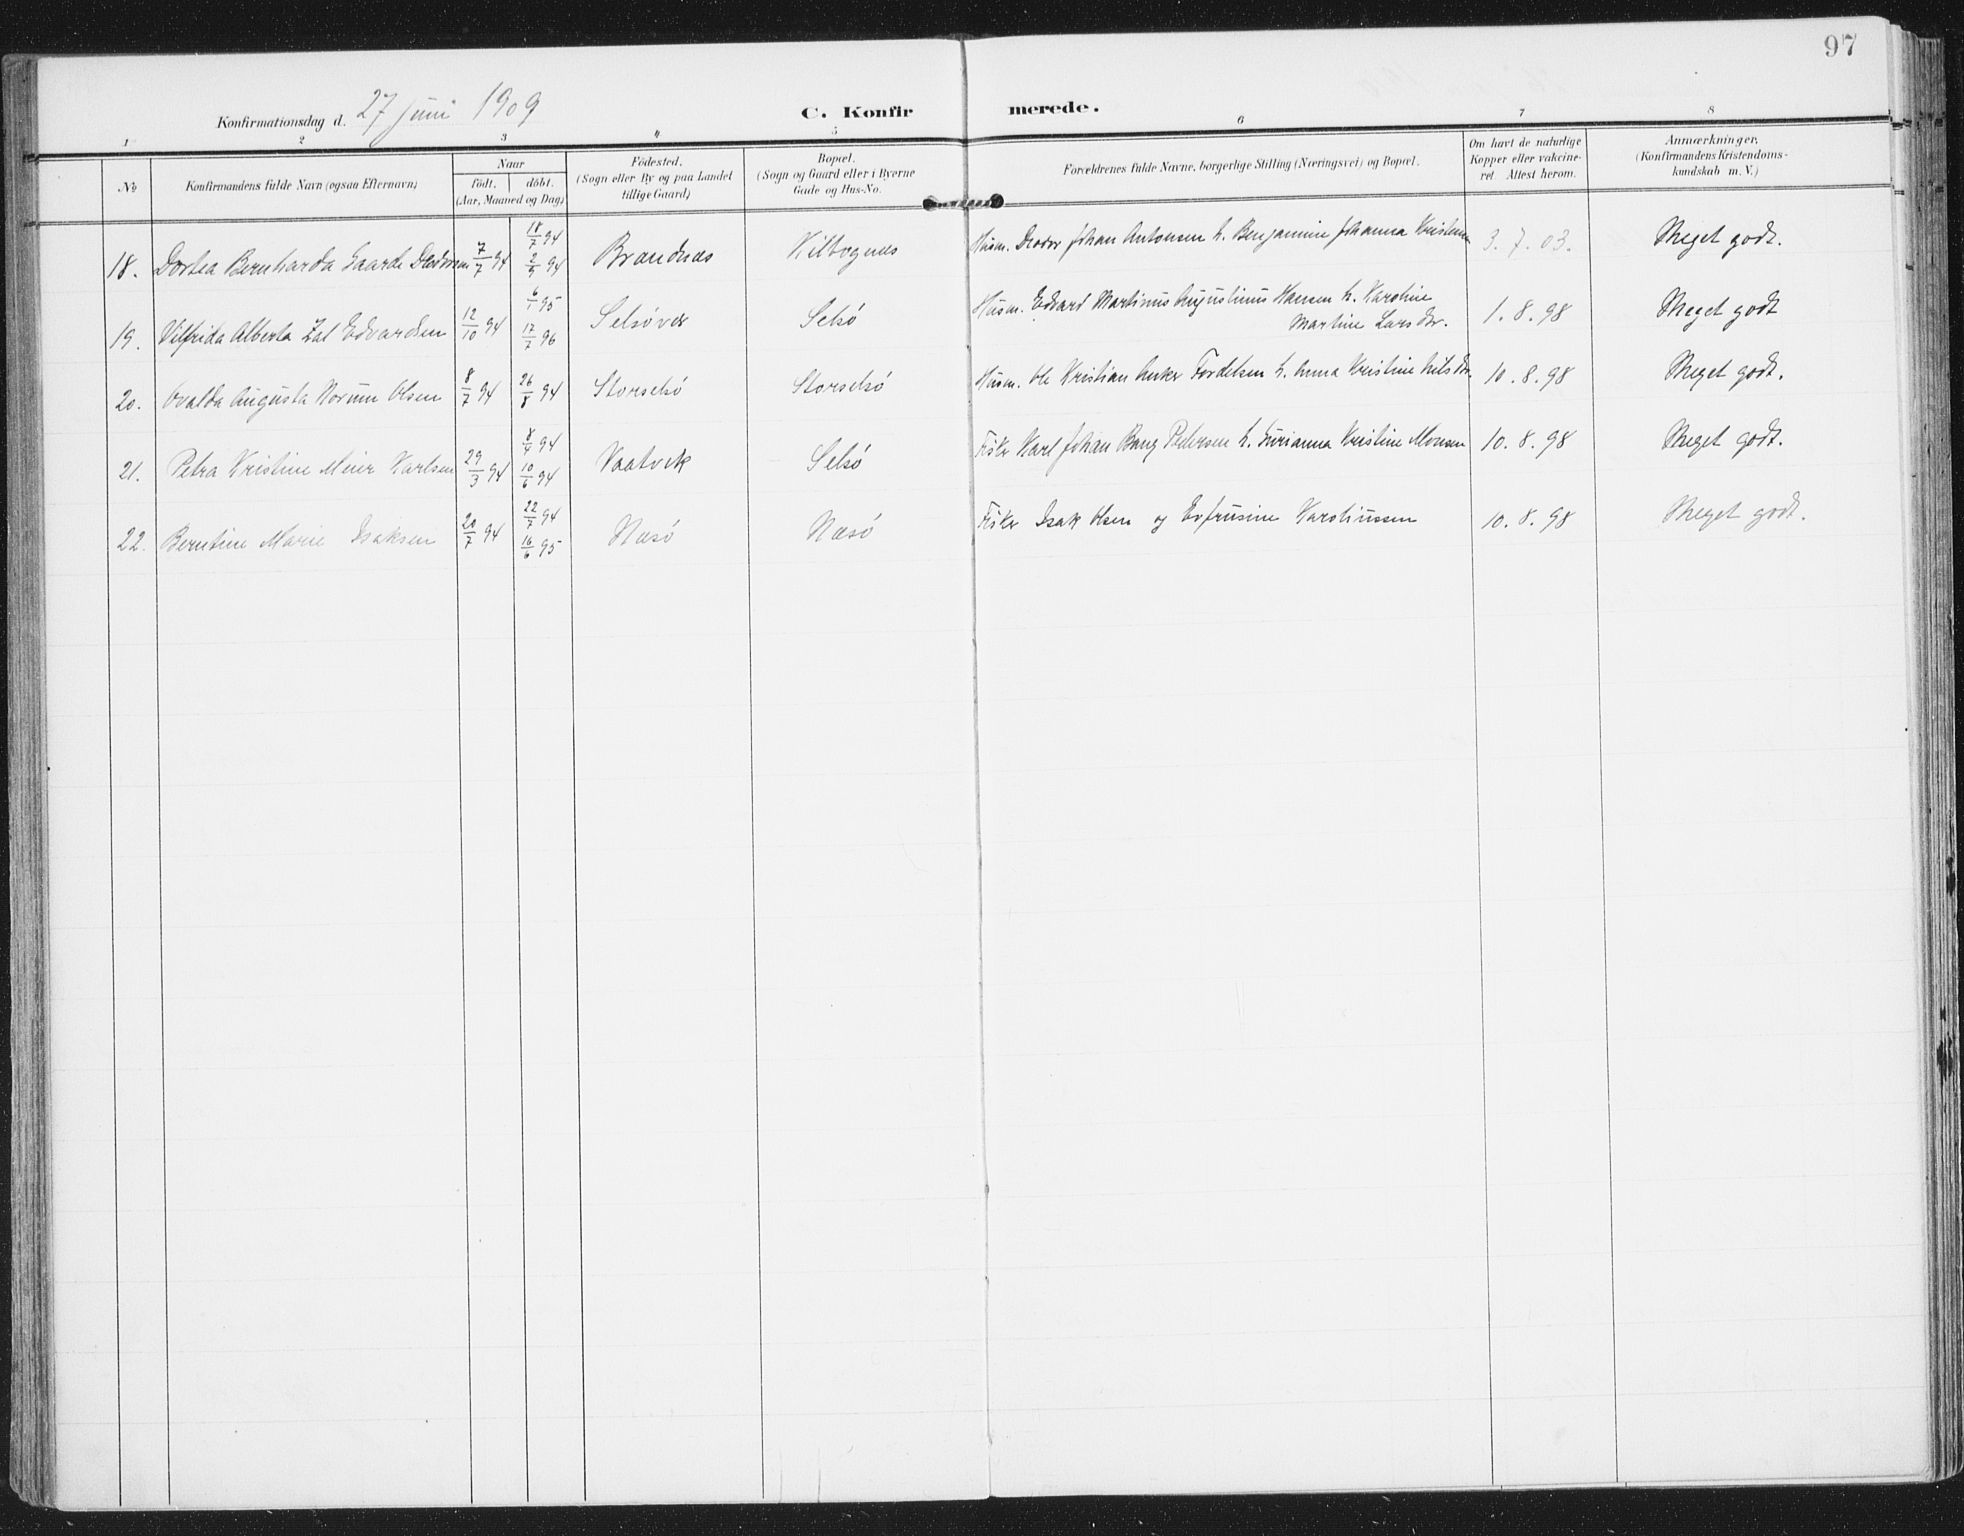 97
Konfirmationsdag d. 27 juni 1909
C. Konfirmerede.
1 2 3 4 5 6 7 8
No
Konfirmandens fulde Navn (ogsaa Efternavn)
Naar
födt. döbt.
(Aar, Maaned og Dag)
Födested.
(Sogn eller By og paa Landet
tillige Gaard)
Bopæl.
(Sogn og Gaard eller i Byerne
Gade og Hus-No.
Forældrenes fulde Navne, borgerlige Stilling (Næringsvei) og Bopæl.
Om havt de naturlige
Kopper eller vakcine-
ret. Attest herom.
Anmærkninger.
(Konfirmandens Kristendoms-
kundskab m. V.)
18. Dortea Bernharda Gaarde 7/7 94 18/7 94 2/9 94 Brandnæs Kilbognes Husm. Johan Antonsen h. Benjamine Johanna 3.7.03. Meget godt.
19. Vilfrida Alberta Zal Edvardsen 12/10 94 6/1 95 17/7 96 Selsövær Selsö Husm. Edvard Martinus Augustinus Hansen h. Karoline
Martine Larsdtr. 1.8.98 Meget godt
20. Ovalda Augusta Norum Olsen 8/7 94 26/8 94 Storselsö Storselsö Husm. Ole Kristian Anker Fordelsen h. Anna Kristine Nilsdtr. 10.8.98 Meget godt.
21. Petra Kristine Meier Karlsen 29/3 94 8/4 94 10/6 94 Vaatvik Selsö Fisker Karl Johan Bang Pedersen h. Kristine Monsen 10.8.98 Meget godt.
22. Berntine Marie Isaksen 20/7 94 22/7 94 16/6 95 Næsö Næsö Fisker Isak Olsen og Evfrusine Karoliussen 10.8.98 Meget godt.